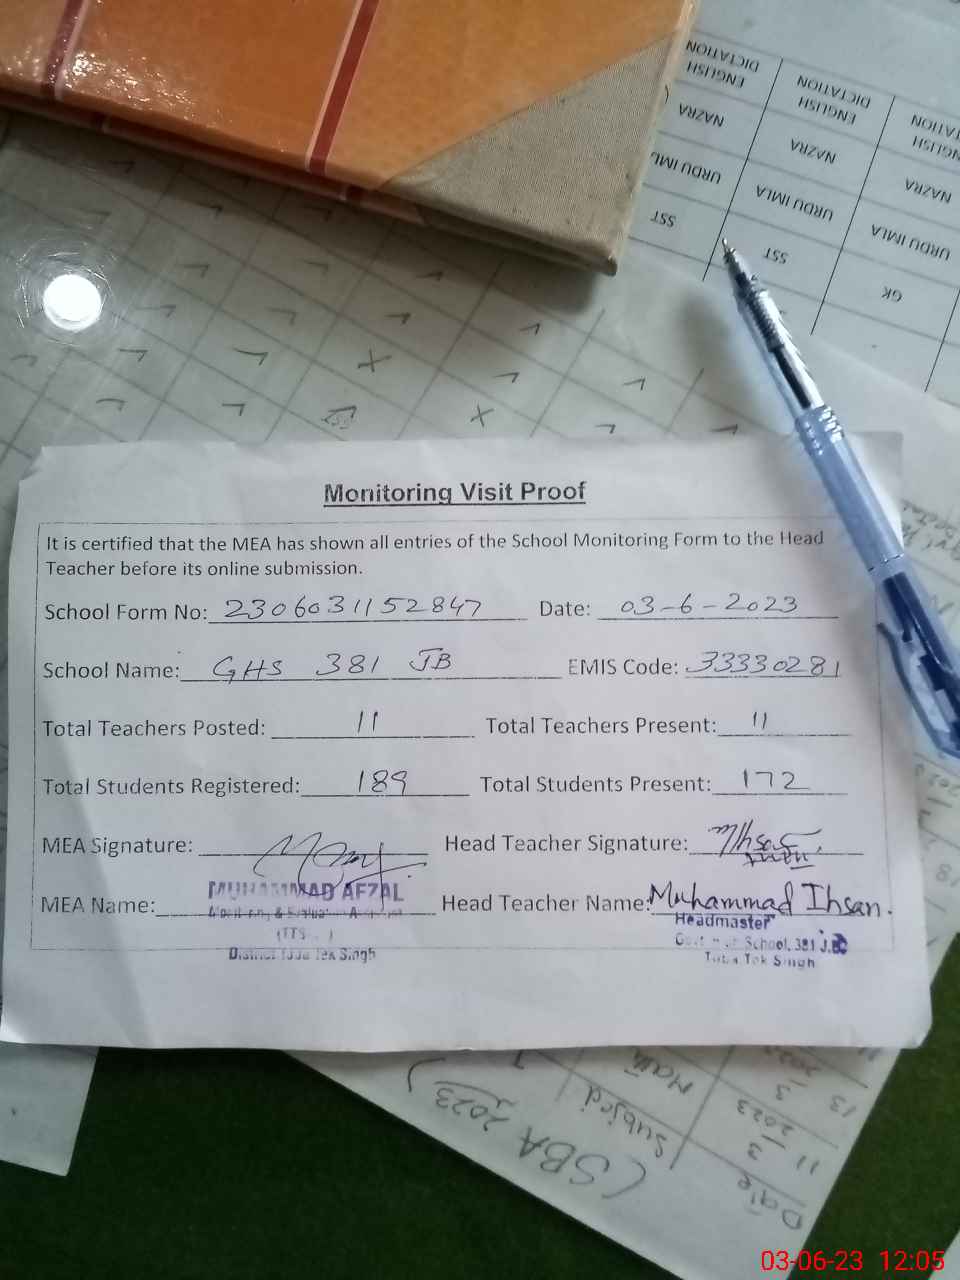 DICTATION
ENGLISH
NAZRA
SST
DICTATION
ENGLISH
NAZRA
URDU IMLA
SST
NAZRA
URDU IMLA
GK
Monitoring Visit Proof
It is certified that the MEA has shown all entries of the School Monitoring Form to the Head
Teacher before its online submission.
School Form No: 2306031152847 Date: 03-6-2023
School Name: GHS 381 JB EMIS Code: 33330281
Total Teachers Posted: 11 Total Teachers Present: 11
Total Students Registered: 189 Total Students Present: 172
MEA Signature: Head Teacher Signature:
MEA Name: MUHAMMAD AFZAL Head Teacher Name: Muhammad Ihsan.
Headmaster
School, 381 J.B
District Tek Singh
Tek Singh
(SBA 2023)
Date Subject
11 3 2023 Math
13 3
03-06-23 12:05